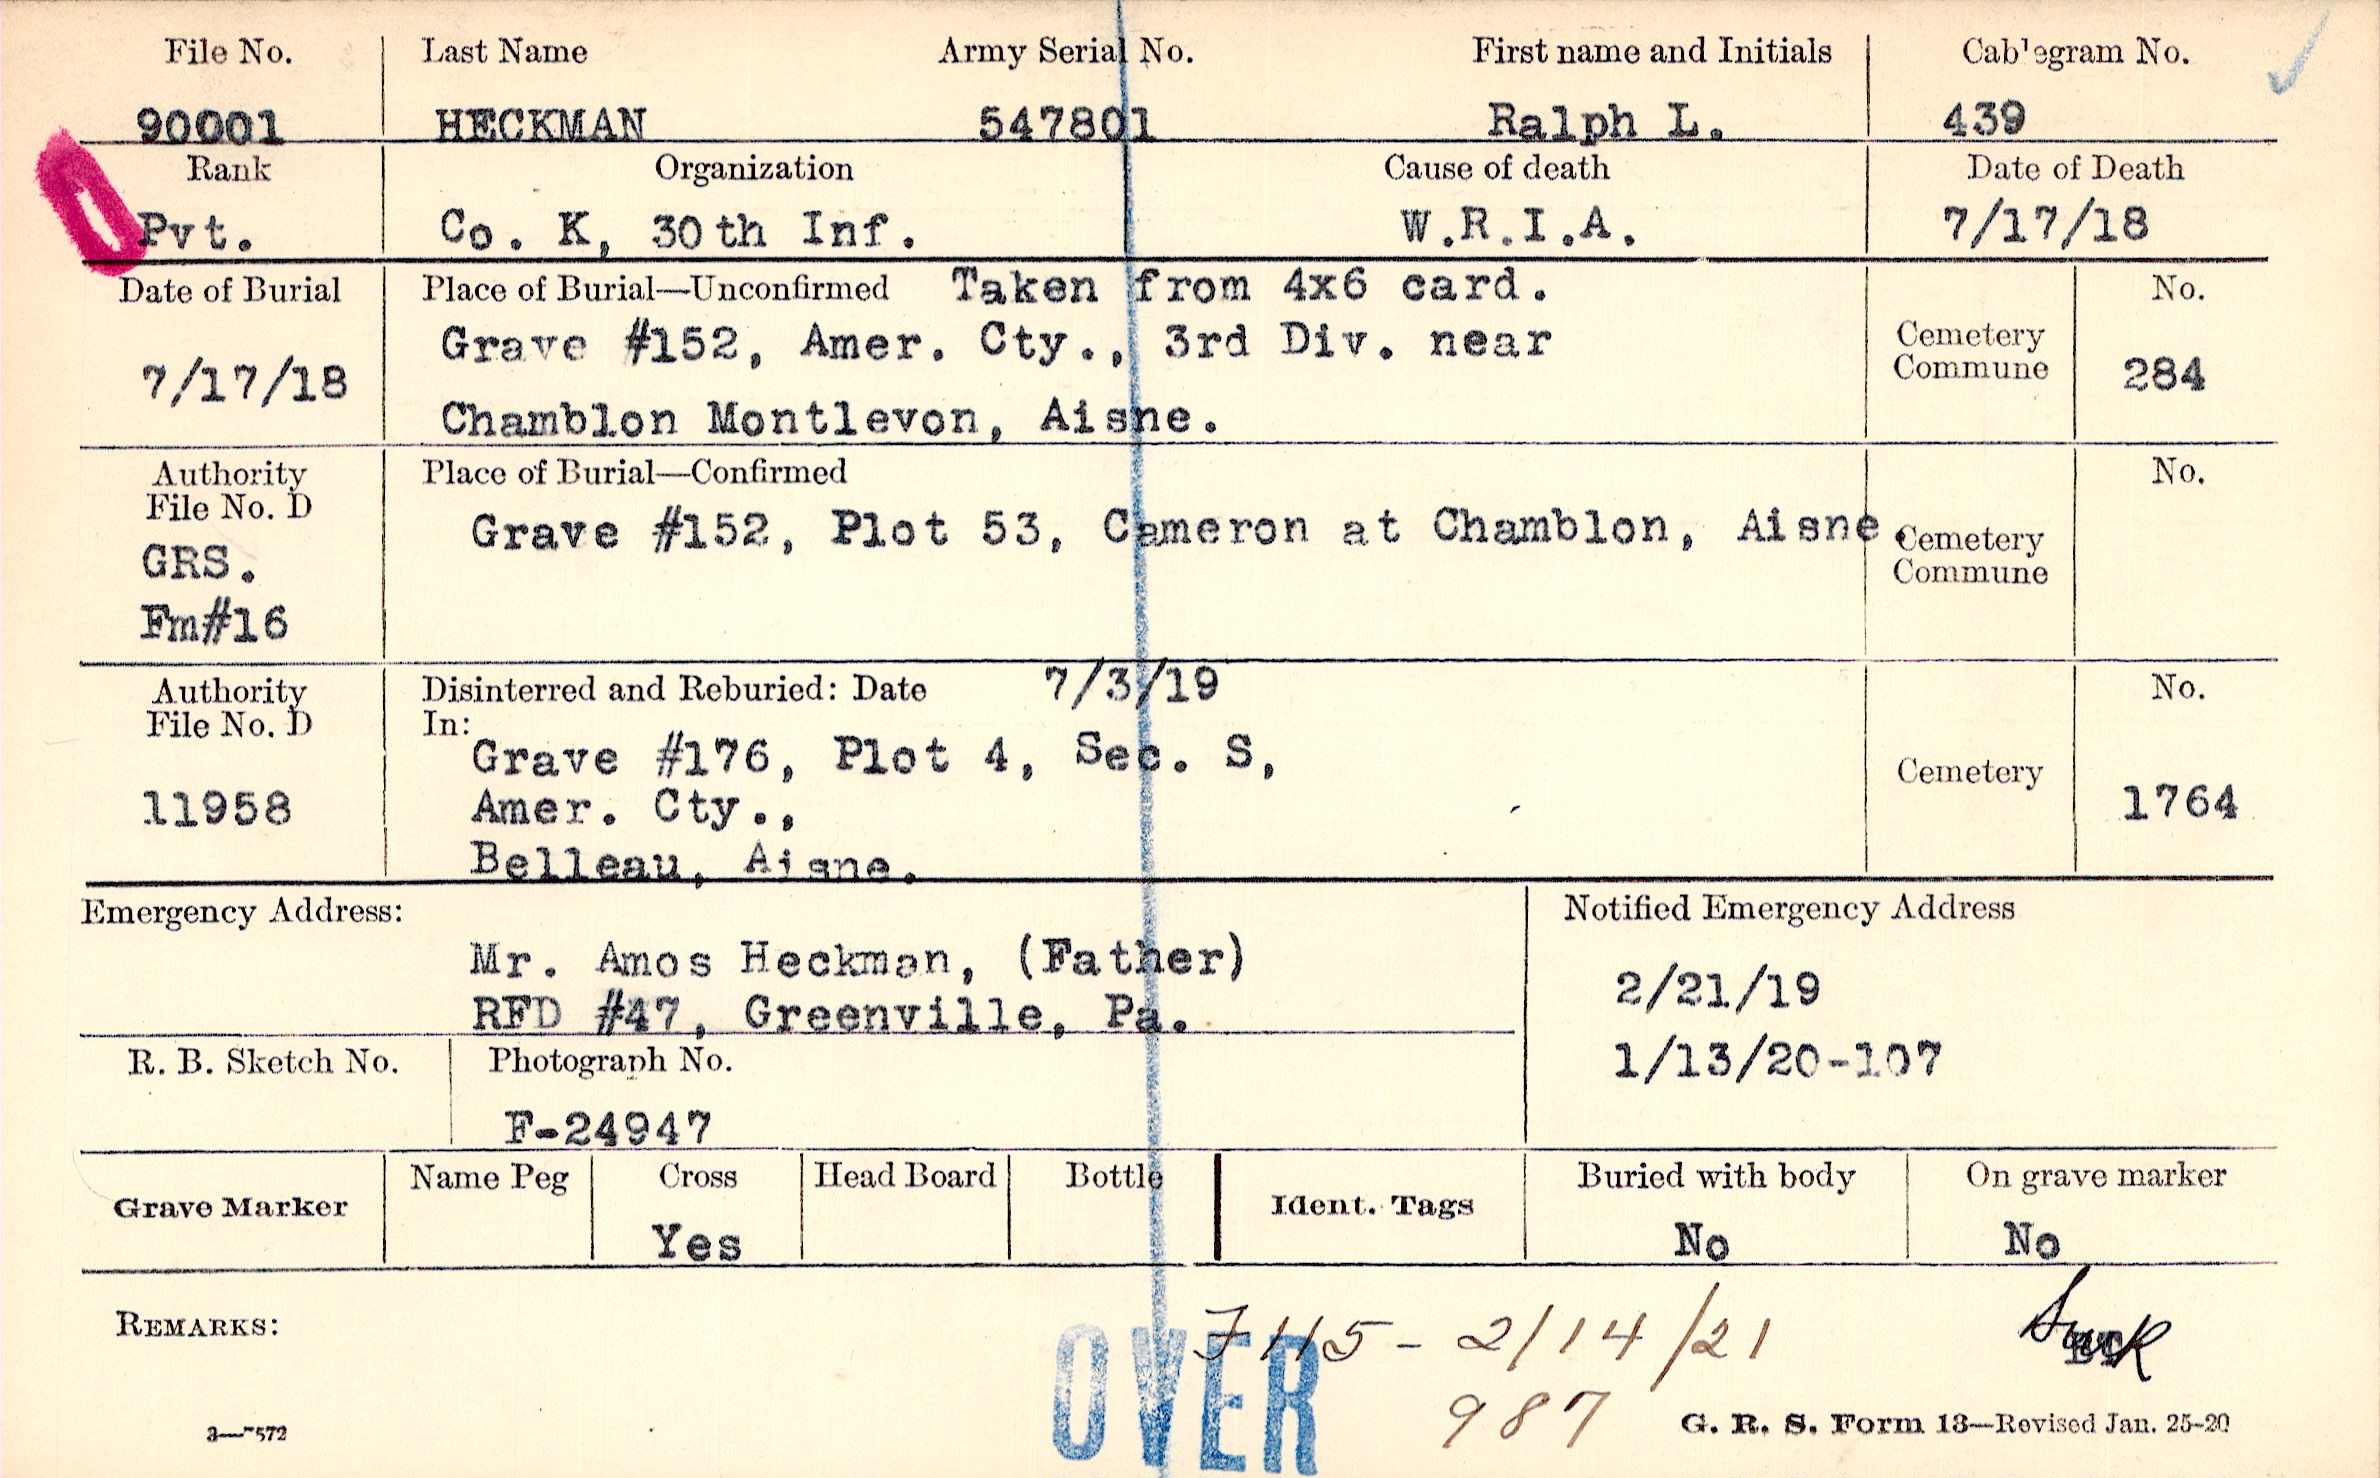 File No. Last Name Army Serial No. First name and Initials Cablegram No.
90001 HECKMAN 547801 Ralph L. 439
Rank Organization Cause of death Date of Death
Pvt. Co. K, 30th Inf. W.R.I.A. 7/17/18
Date of Burial Place of Burial—Unconfirmed Taken from 4x6 card. No.
Grave #152, Amer. Cty., 3rd Div. near Cemetery
7/17/18 Commune 284
Chamblon Montlevon, Aisne.
Authority Place of Burial—Confirmed No.
File No. D
Grave #152, Plot 53, Cameron at Chamblon, Aisne. Cemetery
GRS. Commune
Fm#16
Authority Disinterred and Reburied: Date 7/3/19 No.
File No. D In:
Grave #176, Plot 4, Sec. S, Cemetery
11958 Amer. Cty., 1764
Belleau, Aisne.
Emergency Address: Notified Emergency Address
Mr. Amos Heckman, (Father) 2/21/19
RFD #47, Greenville, Pa.
R. B. Sketch No. Photograph No. 1/13/20-107
F-24947
Name Peg Cross Head Board Bottle Buried with body On grave marker
Grave Marker Ident. Tags
Yes No No
REMARKS: 7115 - 2/14/21
OVER
987 G. R. S. Form 13—Revised Jan. 25-20